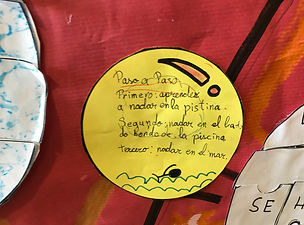 Paso a Paso.
Primero: aprender
a nadar en la piscina.
Segundo: nadar en el
do bordo de la piscina
tercero: nadar en el mar.
SE